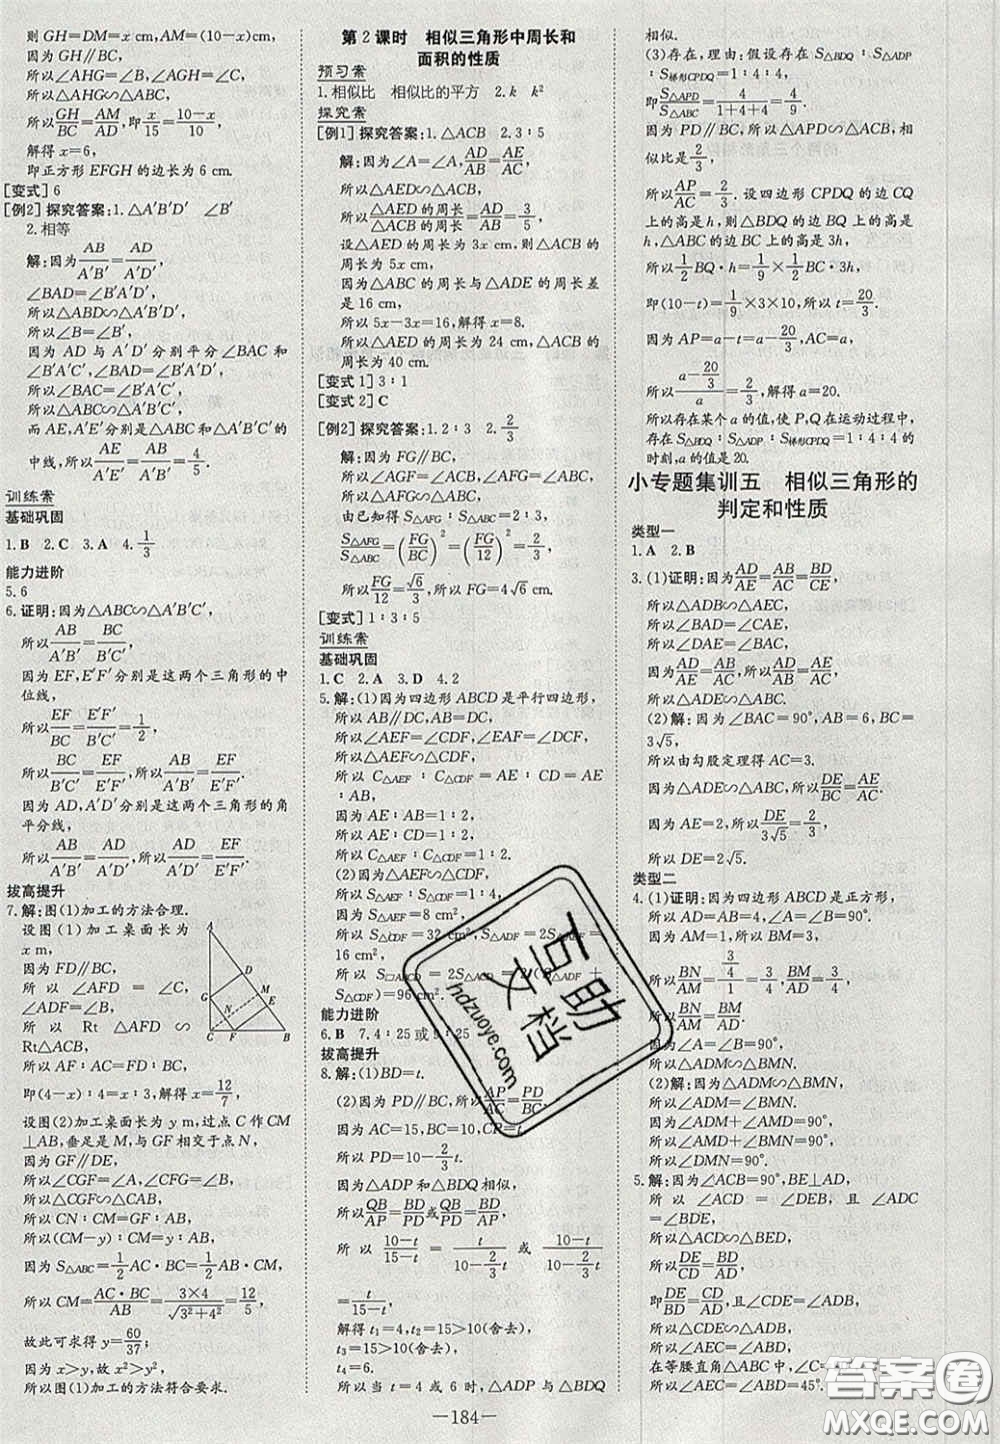 则 GH=DM=x cm,AM=(10-x)cm.
因为 GH∥BC,
所以∠AHG=∠B,∠AGH=∠C,
所以△AGH∽△ABC,
所以GH/BC=AM/AD,即x/15=(10-x)/10,
解得 x=6,
即正方形 EFGH 的边长为 6 cm.
[变式] 6
[例2] 探究答案:1.△A′B′D′ ∠B′
2.相等
解:因为AB/A′B′=AD/A′D′,
∠BAD=∠B′A′D′,
所以△ABD∽△A′B′D′,
所以∠B=∠B′,
因为 AD 与 A′D′分别平分∠BAC 和∠B′A′C′,
所以∠BAC=∠B′A′C′,
所以△ABC∽△A′B′C′,
而 AE,A′E′分别是△ABC 和△A′B′C′的
中线,所以AE/A′E′=AB/A′B′=4/5.
训练案
基础巩固
1.B 2.C 3.A 4.1/3
能力进阶
5.6
6.证明:因为△ABC∽△A′B′C′,
所以AB/A′B′=BC/B′C′,
因为 EF,E′F′是这两个三角形的中
位线,
所以EF/BC=E′F′/B′C′=1/2,
所以BC/B′C′=EF/E′F′,所以AB/A′B′=EF/E′F′.
因为 AD,A′D′分别是这两个三角形的角
平分线,
所以AD/A′D′=AB/A′B′,所以AD/A′D′=EF/E′F′.
拔高提升
7.解:图(1)加工的方法合理.
设图(1)加工桌面长为
x m,
因为 FD∥BC,
所以∠AFD=∠C,
所以 Rt△AFD∽
Rt△ACB,
所以 AF∶AC=FD∶BC,
即(4-x)∶4=x∶3,解得 x=12/7,
设图(2)加工桌面长为 y m,过点 C 作 CM
⊥AB,垂足是 M,与 GF 相交于点 N,
因为 GF∥DE,
所以∠CGF=∠A,∠CFG=∠B,
所以△CGF∽△CAB,
所以 CN∶CM=GF∶AB,
所以(CM-y)∶CM=y∶AB.
因为 S△ABC=1/2AC·BC=1/2AB·CM,
所以 CM=AC·BC/AB=3×4/√(3²+4²)=12/5,
故此可求得 y=60/37;
因为 x>y,故 x²>y²,
所以图(1)加工的方法符合要求.
第 2 课时 相似三角形中周长和
面积的性质
预习案
1.相似比 相似比的平方 2.k k²
探究案
[例1] 探究答案:1.△ACB 2.3∶5
解:因为∠A=∠A,AD/AB=AE/AC,
所以△AED∽△ACB,
所以△AED 的周长/△ACB 的周长=AD/AB=3/5,
设△AED 的周长为 3x cm,则△ACB 的
周长为 5x cm,
因为△ABC 的周长与△ADE 的周长差
是 16 cm,
所以 5x-3x=16,解得 x=8.
所以△AED 的周长为 24 cm,△ACB 的
周长为 40 cm.
[变式1] 3∶1
[变式2] C
[例2] 探究答案:1.2∶3 2.2/3
解:因为 FG∥BC,
所以△AFG∽△ABC,
由已知得 S△AFG∶S△ABC=2∶3,
S△AFG/S△ABC=(FG/BC)²=(FG/12)²=2/3,
所以FG/12=√6/3,所以 FG=4√6 cm.
[变式] 1∶3∶5
训练案
基础巩固
1.C 2.A 3.D 4.2
5.解:(1)因为四边形 ABCD 是平行四边形,
所以 AB∥DC,AB=DC,
所以∠AEF=∠CDF,∠EAF=∠DCF,
所以△AEF∽△CDF,
所以 C△AEF∶C△CDF=AE∶CD=AE∶
AB,
因为 AE∶AB=1∶2,
所以 AE∶CD=1∶2,
所以 C△AEF∶C△CDF=1∶2.
(2)因为△AEF∽△CDF,
所以 S△AEF∶S△CDF=1∶4,
因为 S△AEF=8 cm²,
所以 S△CDF=32 cm²,S△ADF=2S△AEF=
16 cm²,
所以 S□ABCD=2S△ACD=2(S△ADF+
S△CDF)=96 cm².
能力进阶
6.B 7.4∶25 或 9∶25
拔高提升
8.解:(1)BD=t.
(2)因为 PD∥BC,所以AC/AP=PD/BC.
因为 AC=15,BC=10,CP=t,
所以 PD=10-2/3t,
因为△ADP 和△BDQ 相似,
所以QB/AP=BD/PD或QB/PD=BD/AP,
所以(10-t)/(15-t)=t/(10-2/3t)或(10-t)/(10-2/3t)
=t/(15-t),
解得 t₁=4,t₂=15>10(舍去),
t₃=15>10(舍去),
t₄=6.
所以当 t=4 或 6 时,△ADP 与△BDQ
相似.
(3)存在,理由:假设存在 S△BDQ∶S△ADP
∶S梯形CPDQ=1∶4∶4,
即S△APD/S△ABC=4/(1+4+4)=4/9,
因为 PD∥BC,所以△APD∽△ACB,相
似比是2/3,
所以AP/AC=2/3.设四边形 CPDQ 的边 CQ
上的高是 h,则△BDQ 的边 BQ 上的高是
h,△ABC 的边 BC 上的高是 3h,
所以1/2BQ·h=1/9×1/2BC·3h,
即(10-t)=1/9×3×10,所以 t=20/3.
因为 AP=a-20/3,AC=a,
所以(a-20/3)/a=2/3,解得 a=20.
所以存在某个 a 的值,使 P,Q 在运动过程中,
存在 S△BDQ∶S△ADP∶S梯形CPDQ=1∶4∶4
的时刻,a 的值是 20.
小专题集训五 相似三角形的
判定和性质
类型一
1.A 2.B
3.(1)证明:因为AD/AE=AB/AC=BD/CE,
所以△ADB∽△AEC,
所以∠BAD=∠CAE,
所以∠DAE=∠BAC,
因为AD/AB=AE/AC,
所以△ADE∽△ABC.
(2)解:因为∠BAC=90°,AB=6,BC=
3√5,
所以由勾股定理得 AC=3.
因为△ADE∽△ABC,所以DE/BC=AE/AC,
因为 AE=2,所以DE/3√5=2/3,
所以 DE=2√5.
类型二
4.(1)证明:因为四边形 ABCD 是正方形,
所以 AB=AD=4,∠A=90°.
所以BN/AM=(3/4)/1=3/4,BM/AD=3/4,
所以BN/AM=BM/AD.
因为∠A=∠B=90°,
所以△ADM∽△BMN.
(2)因为△ADM∽△BMN,
所以∠ADM=∠BMN.
因为∠ADM+∠AMD=90°,
所以∠AMD+∠BMN=90°,
所以∠DMN=90°.
5.解:因为∠ACB=90°,BE⊥AD,
所以∠ACD=∠DEB,且∠ADC
=∠BDE,
所以△ACD∽△BED,
所以DE/CD=BD/AD,
即DE/BD=CD/AD,且∠CDE=∠ADB,
所以△CDE∽△ADB,
所以∠AEC=∠ABD,
在等腰直角△ABC 中,∠ABD=45°,
所以∠AEC=∠ABD=45°.
—184—
互助文档
hdzuoye.com
答案圈
MXQE.COM